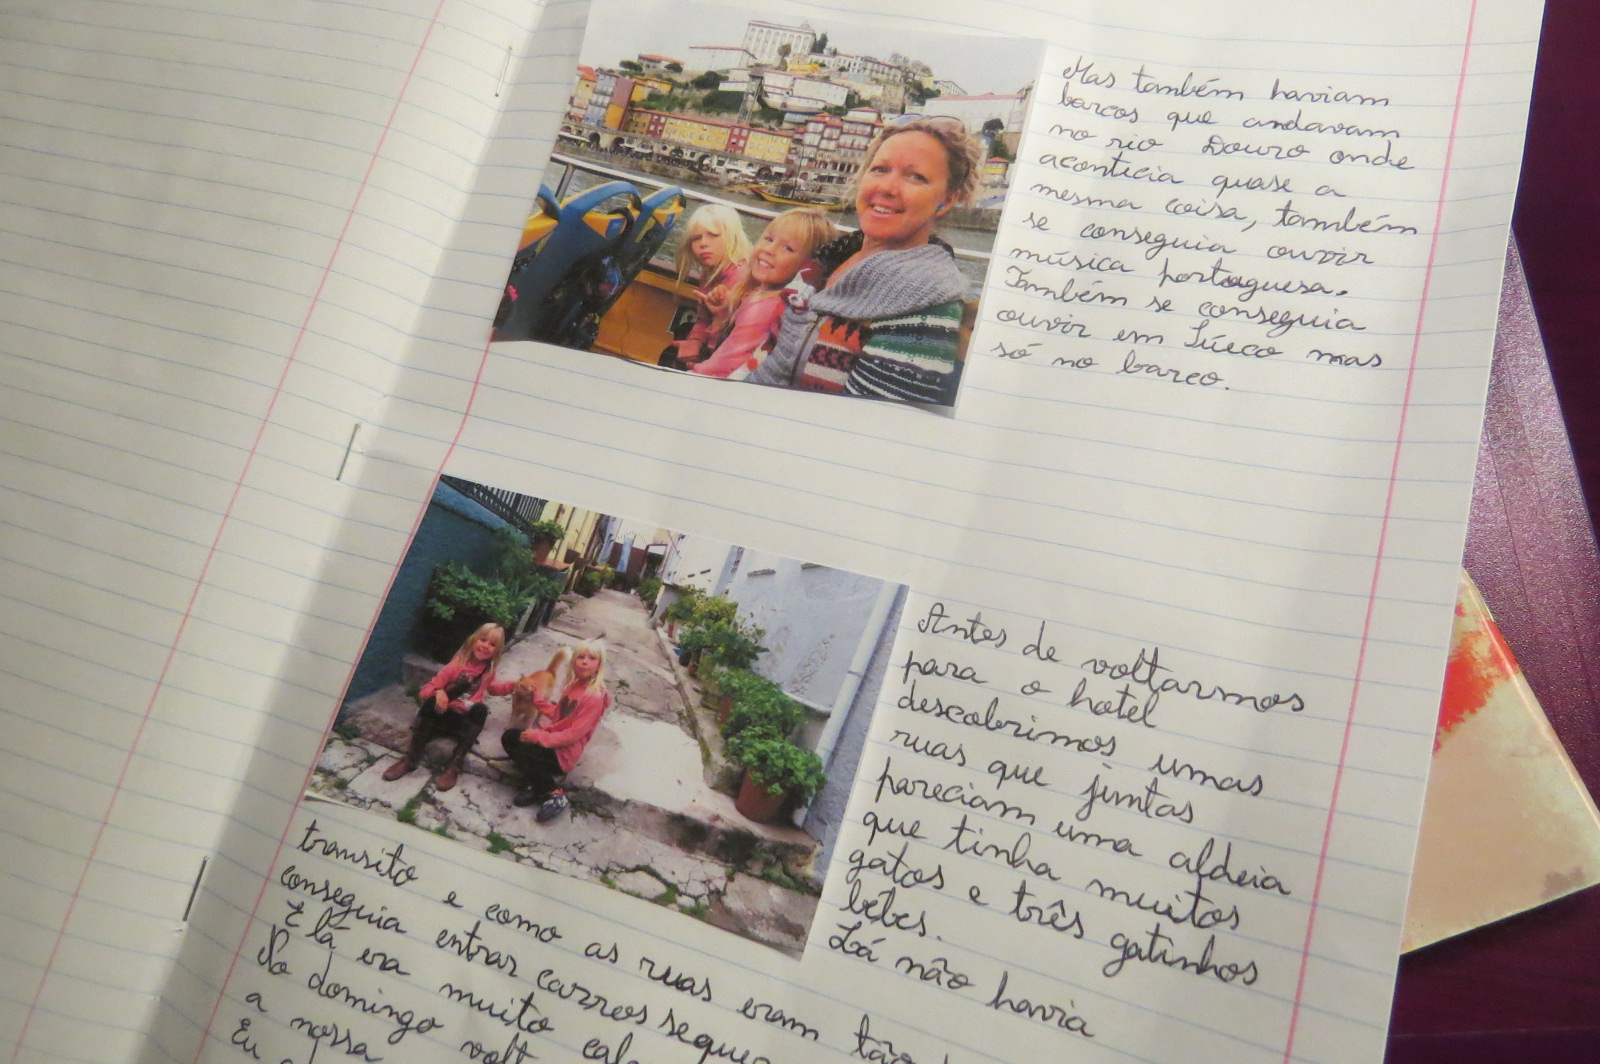 Mas também haviam
barcos que andavam
no rio Douro onde
aconticia quase a
mesma coisa, também
se conseguia ouvir
música portuguesa.
Também se conseguia
ouvir em Súeco mas
só no barco.
Antes de voltarmos
para o hotel
descobrimos umas
ruas que juntas
pareciam uma aldeia
que tinha muitos
gatos e três gatinhos
bêbes.
Lá não havia
transito e como as ruas eram tão
conseguia entrar carros sequer
E lá era muito
No domingo
a nossa
Eu